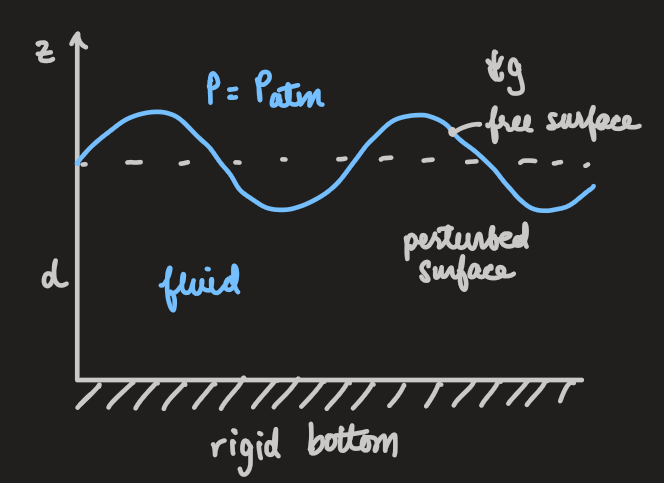 z
P = Patm
g
free surface
perturbed
surface
d
fluid
rigid bottom